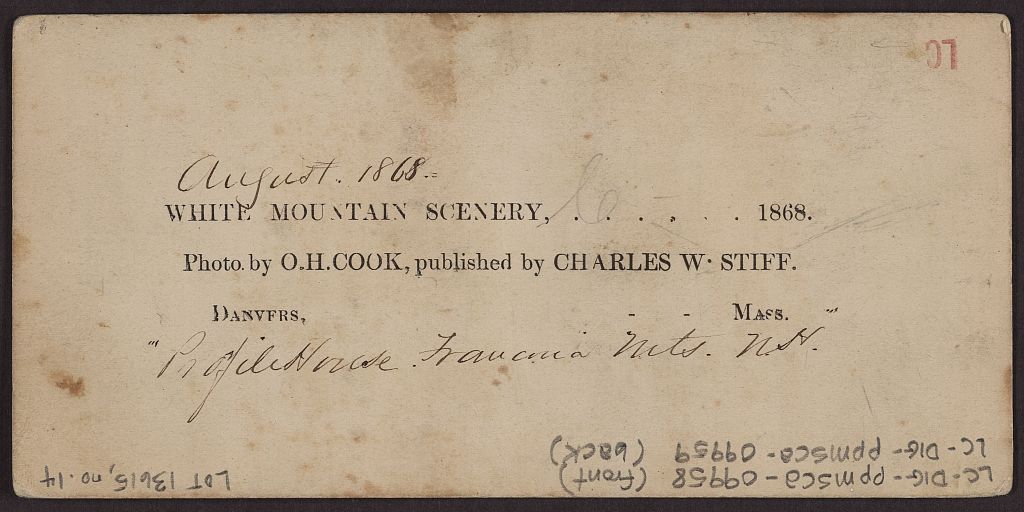 LC
August. 1868.=
WHITE MOUNTAIN SCENERY, . . . . . . 1868.
Photo. by O.H. COOK, published by CHARLES W. STIFF.
DANVERS, - - MASS.
"Profile House. Franconia Mts. N.H."
LOT 13615, no. 14
LC-DIG-ppmsca-09958 (front)
LC-DIG-ppmsca-09959 (back)